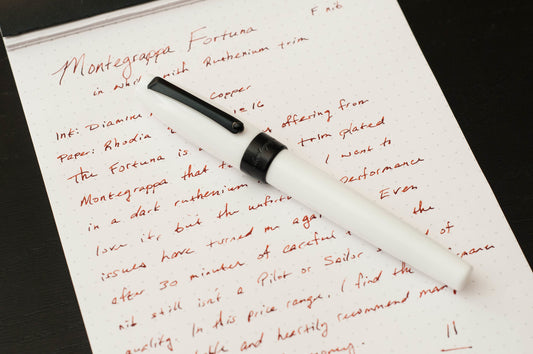 Montegrappa Fortuna F nib
in with Ruthenium trim
Ink: Diamine Copper
Paper: Rhodia 16
The Fortuna is offering from
Montegrappa that trim plated
in a dark ruthenium I want to
love it, but the performance
issues have turned me Even
after 30 minutes of careful the
nib still isn't a Pilot or Sailor of
quality. In this price range, I find the
and heartily recommend
money.
11